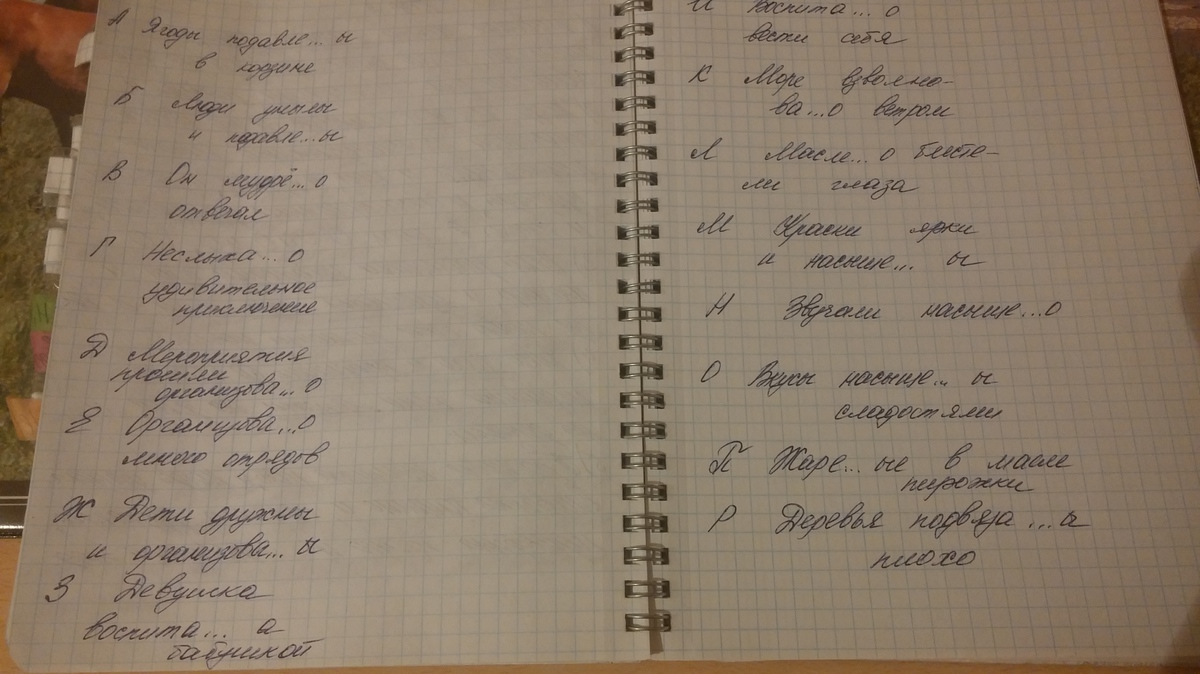 А Ягоды подавле... ы
в корзине
Б Люди унылы
и подавле...ы
В Он мудрё...о
отвечал
Г Неслыха...о
удивительное
приключение
Д Мероприятия
прошли
организова...о
Е Организова...о
много отрядов
Ж Дети дружны
и организова...ы
З Девушка
воспита... а
бабушкой
И Воспита... о
вести себя
К Море взволно-
ва...о ветром
Л Масле...о блесте-
ли глаза
М Краски ярки
и насыще... ы
Н Звучали насыще...о
О Вкусы насыще... ы
сладостями
П Жаре...ые в масле
пирожки
Р Деревья подвяза...ы
плохо